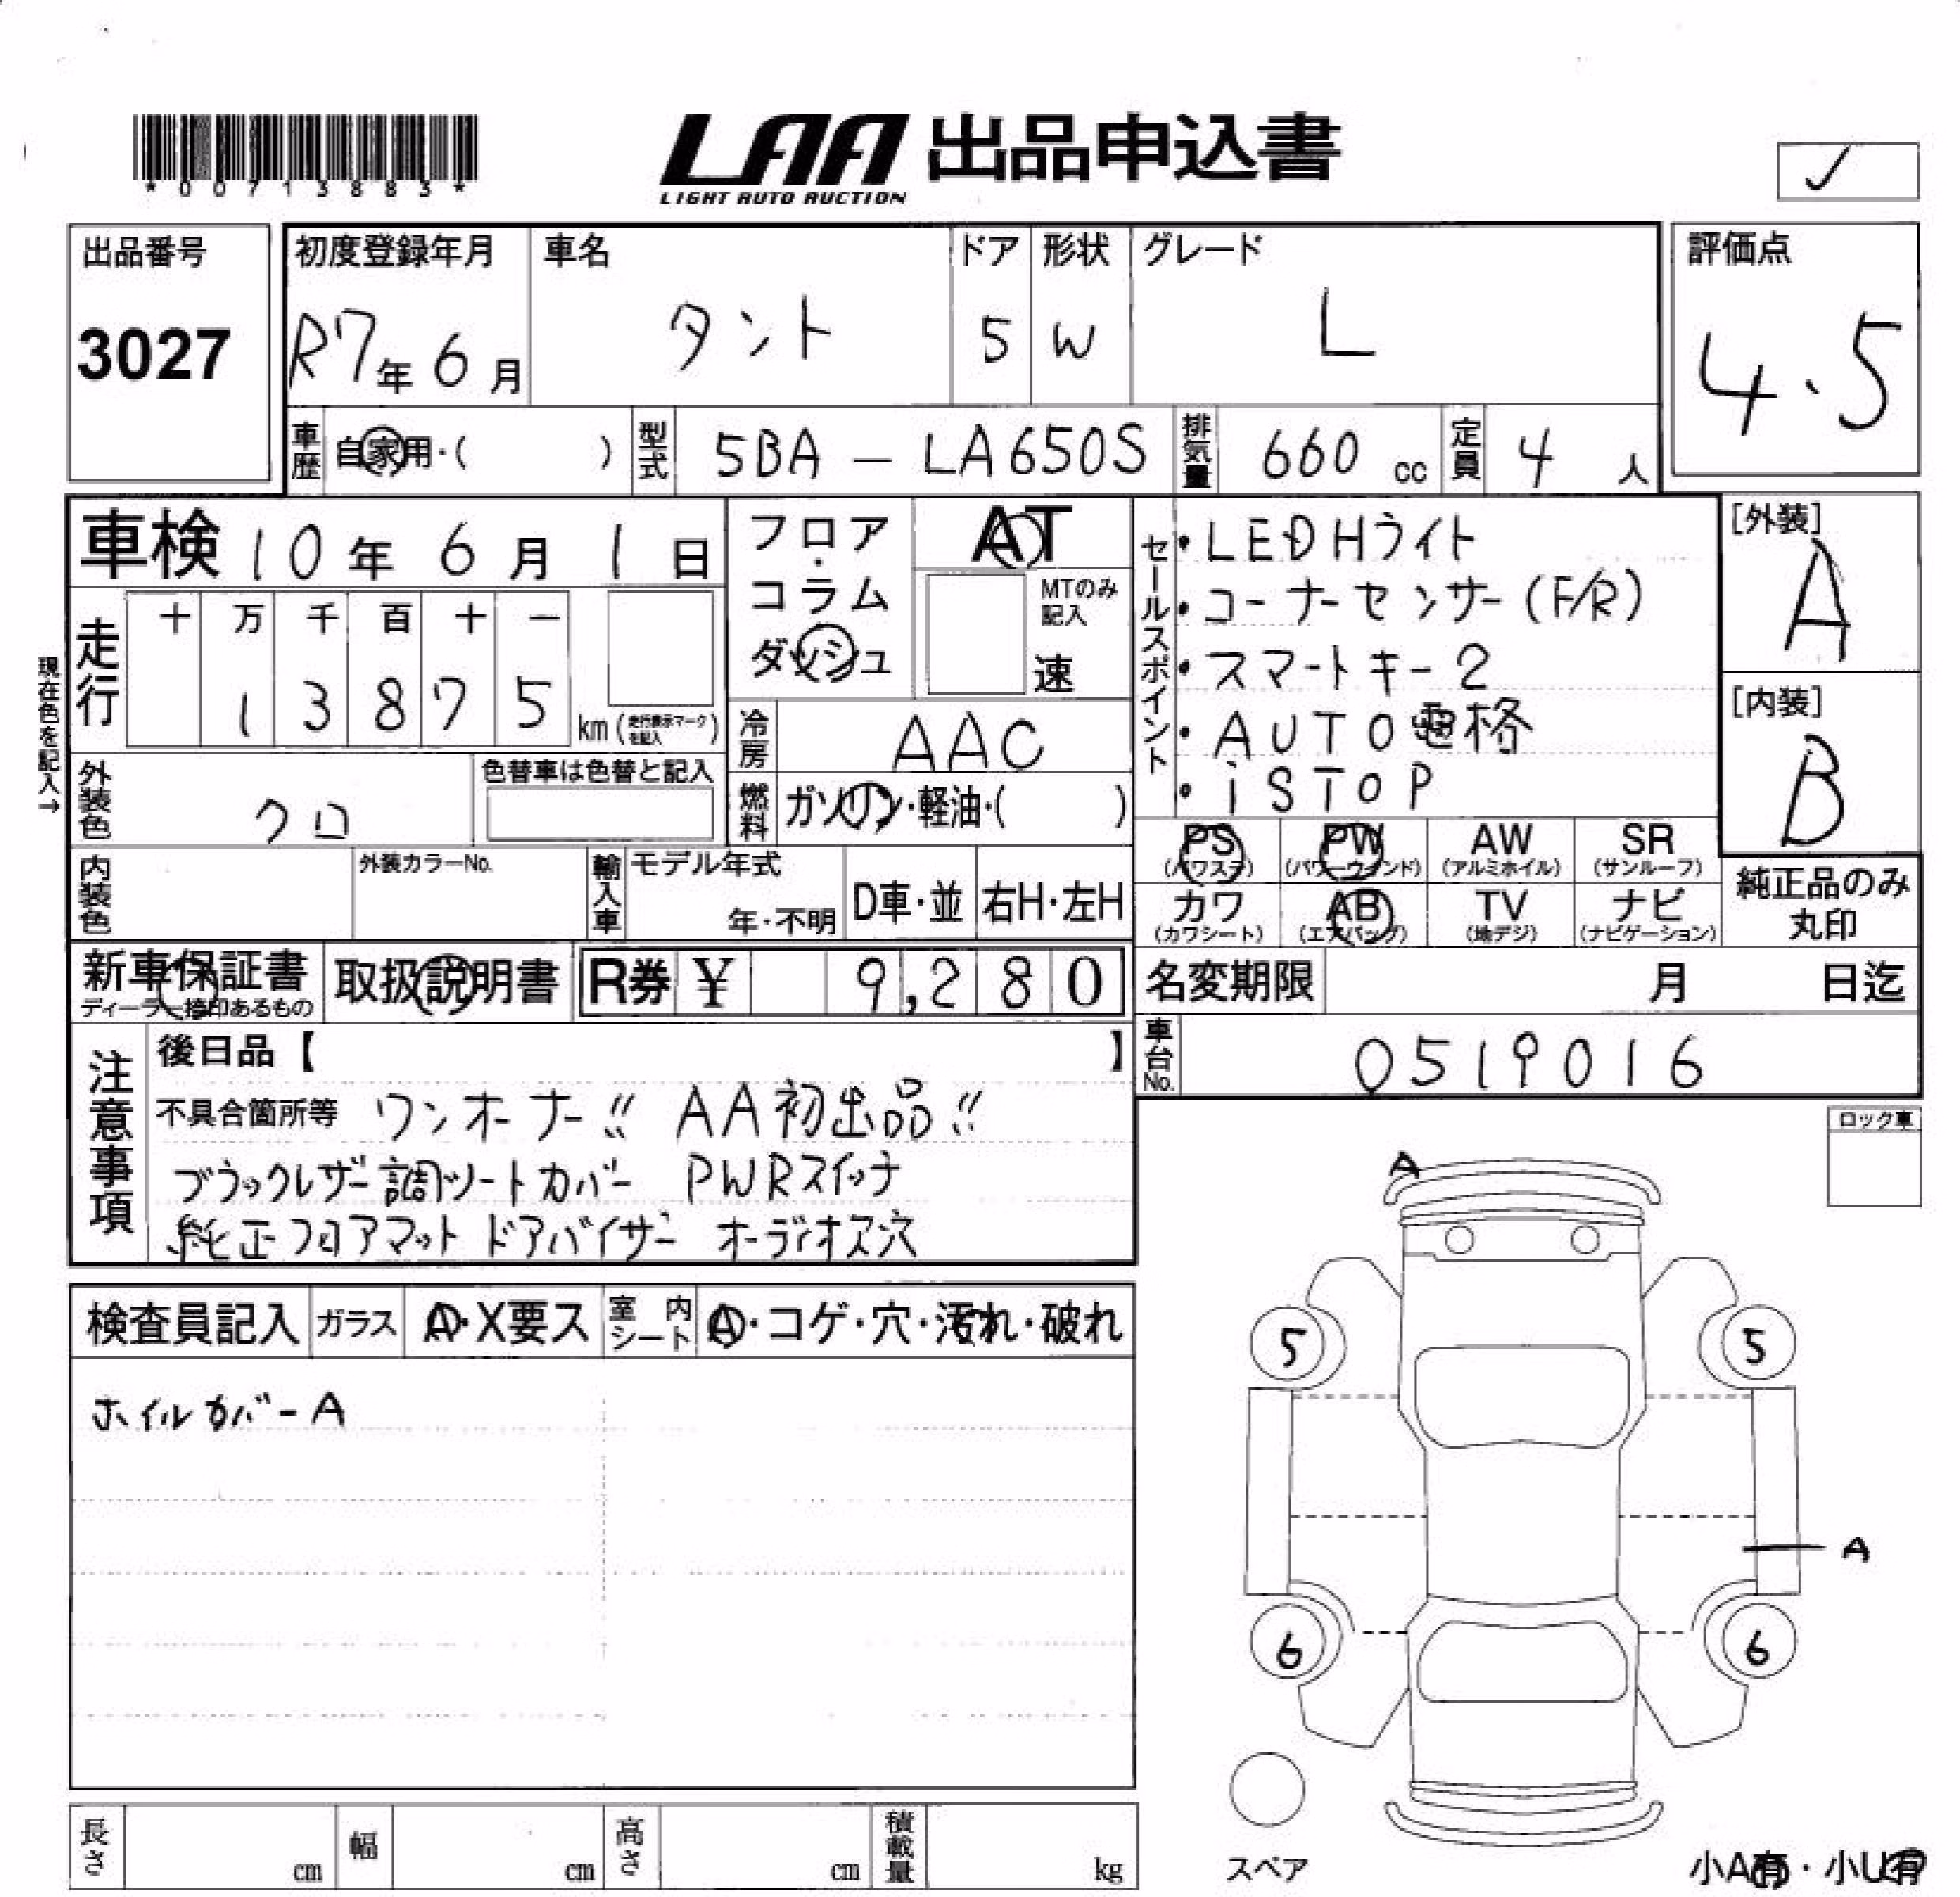 *00713883*
LAA 出品申込書
LIGHT AUTO AUCTION
✓
出品番号
3027
初度登録年月
R7年6月
車名
タント
ドア
5
形状
W
グレード
L
評価点
4.5
車歴
自家用・( )
型式
5BA - LA650S
排気量
660 cc
定員
4 人
車検 10年 6月 1日
フロア・コラム
ダッシュ
AT
MTのみ記入
速
セールスポイント
・LEDHライト
・コーナーセンサー(F/R)
・スマートキー2
・AUTO電格
・iSTOP
[外装]
A
[内装]
B
走行
十 万 千 百 十 一
1 3 8 7 5
km(走行表示マークを記入)
現在色を記入→
冷房
AAC
外装色
クロ
色替車は色替と記入
燃料
ガソリン・軽油・( )
PS (パワステ)
PW (パワーウインド)
AW (アルミホイル)
SR (サンルーフ)
カワ (カワシート)
AB (エアバッグ)
TV (地デジ)
ナビ (ナビゲーション)
純正品のみ
丸印
内装色
外装カラーNo.
輸入車
モデル年式
年・不明
D車・並
右H・左H
新車保証書
ディーラー捺印あるもの
取扱説明書
R券 ¥ 9,280
名変期限 月 日迄
車台No.
0519016
注意事項
後日品【 】
不具合箇所等 ワンオーナー!! AA初出品!!
ブラックレザー調シートカバー PWRスイッチ
純正フロアマット ドアバイザー オーディオス穴
ロック車
検査員記入
ガラス
A・X要ス
室内シート
A・コゲ・穴・汚れ・破れ
ホイルカバーA
A
5
5
A
6
6
スペア
小A有・小U有
長さ cm
幅 cm
高さ cm
積載量 kg